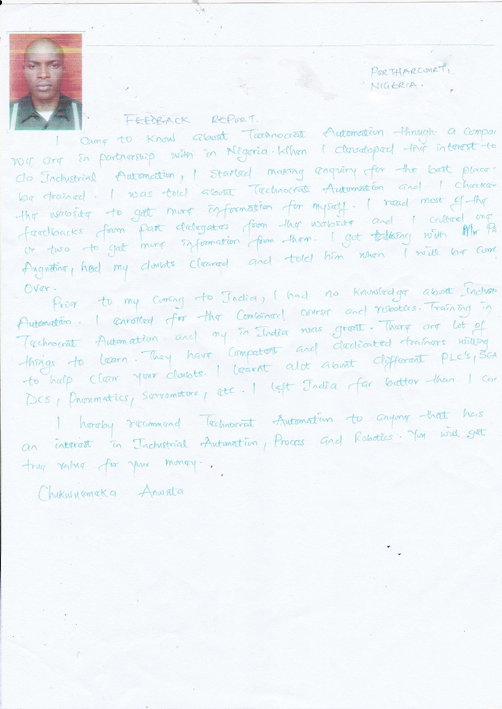 PORTHARCOURT,
NIGERIA.
FEEDBACK REPORT.
I came to know about Technocrat Automation through a compan
we are in partnership with in Nigeria. When I developed the interest to
do Industrial Automation, I started making enquiry for the best place
be trained. I was told about Technocrat Automation and I checked
the website to get more information for myself. I read most of the
feedbacks from past delegates from the website and I called one
or two to get more information from them. I got talking with Mr
Augustine, had my doubts cleared and told him when I will be coming
over.
Prior to my coming to India, I had no knowledge about
Automation. I enrolled for the Combined course and robotics. Training in
Technocrat Automation and my in India was great. There are lot of
things to learn. They have competent and dedicated trainers willing
to help clear your doubts. I learnt alot about different PLC's,
DCS, Pneumatics, Servomotors, etc. I left India far better than I
I hereby recommend Technocrat Automation to anyone that has
an interest in Industrial Automation, Process and Robotics. You will get
true value for your money.
Chukwuemeka